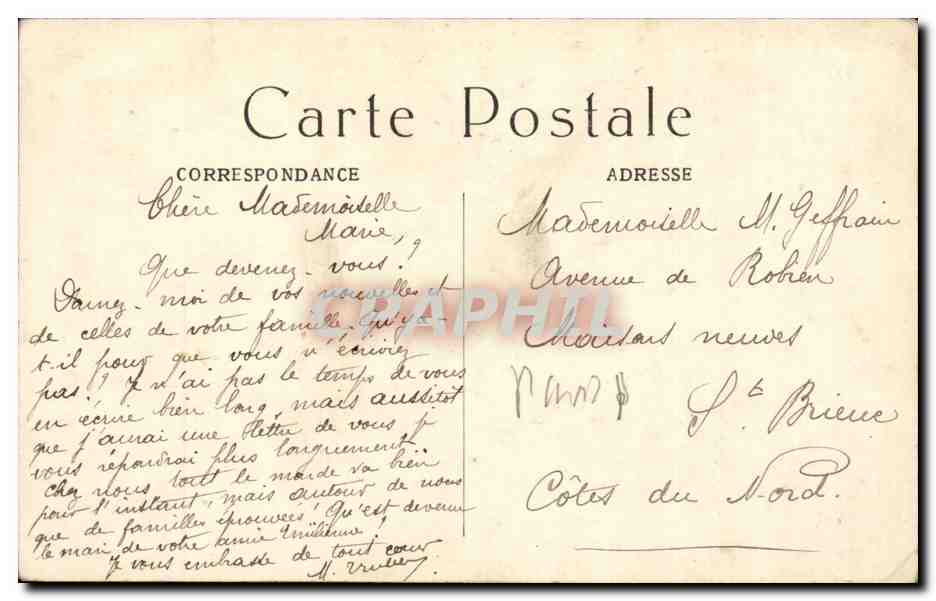 Carte Postale
CORRESPONDANCE
Chère Mademoiselle
Marie,
Que devenez-vous ?
Donnez-moi de vos nouvelles et
de celles de votre famille. Qu'y a-
t-il pour que vous n'écrivez
pas ? Je n'ai pas le temps de vous
en écrire bien long, mais aussitôt
que j'aurai une lettre de vous je
vous répondrai plus longuement.
Chez nous tout le monde va bien
pour l'instant, mais autour de nous
que de familles éprouvées ! Qu'est devenu
le mari de votre amie Emilienne ?
Je vous embrasse de tout cœur
M.
ADRESSE
Mademoiselle M. Geffrain
Avenue de Robien
Maisons neuves
St Brieuc
Côtes du Nord.
CPAPHIL